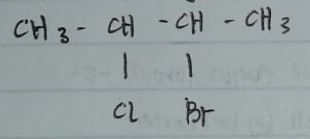 CH3 - CH - CH - CH3
| |
Cl Br